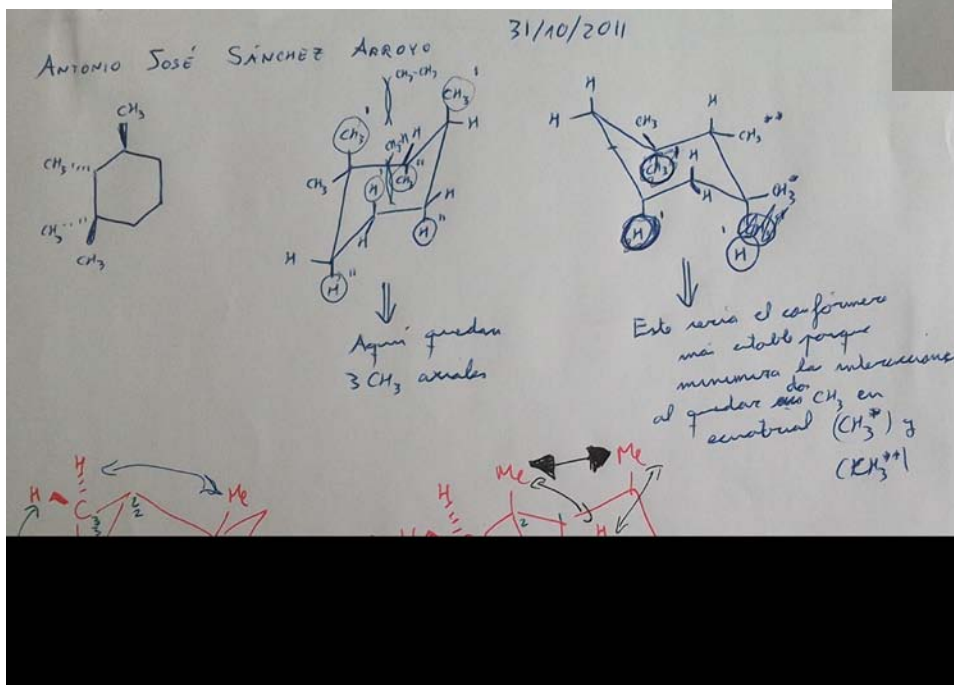 ANTONIO JOSÉ SÁNCHEZ ARROYO
31/10/2011
CH3
CH3
CH3
CH3
CH3-CH3
CH3'
CH3'
H
CH3-H
H
CH3
CH3"
H'
H
H
H
H"
H"
H
H
H
CH3
CH3'
CH3**
H
H
H
CH3*
H'
H'
Aquí quedan
3 CH3 axiales
Este sería el confórmero
más estable porque
minimiza las interacciones
al quedar dos CH3 en
ecuatorial (CH3*) y
(CH3**)
H
H
C
3
2
Me
Me
Me
H
2
H